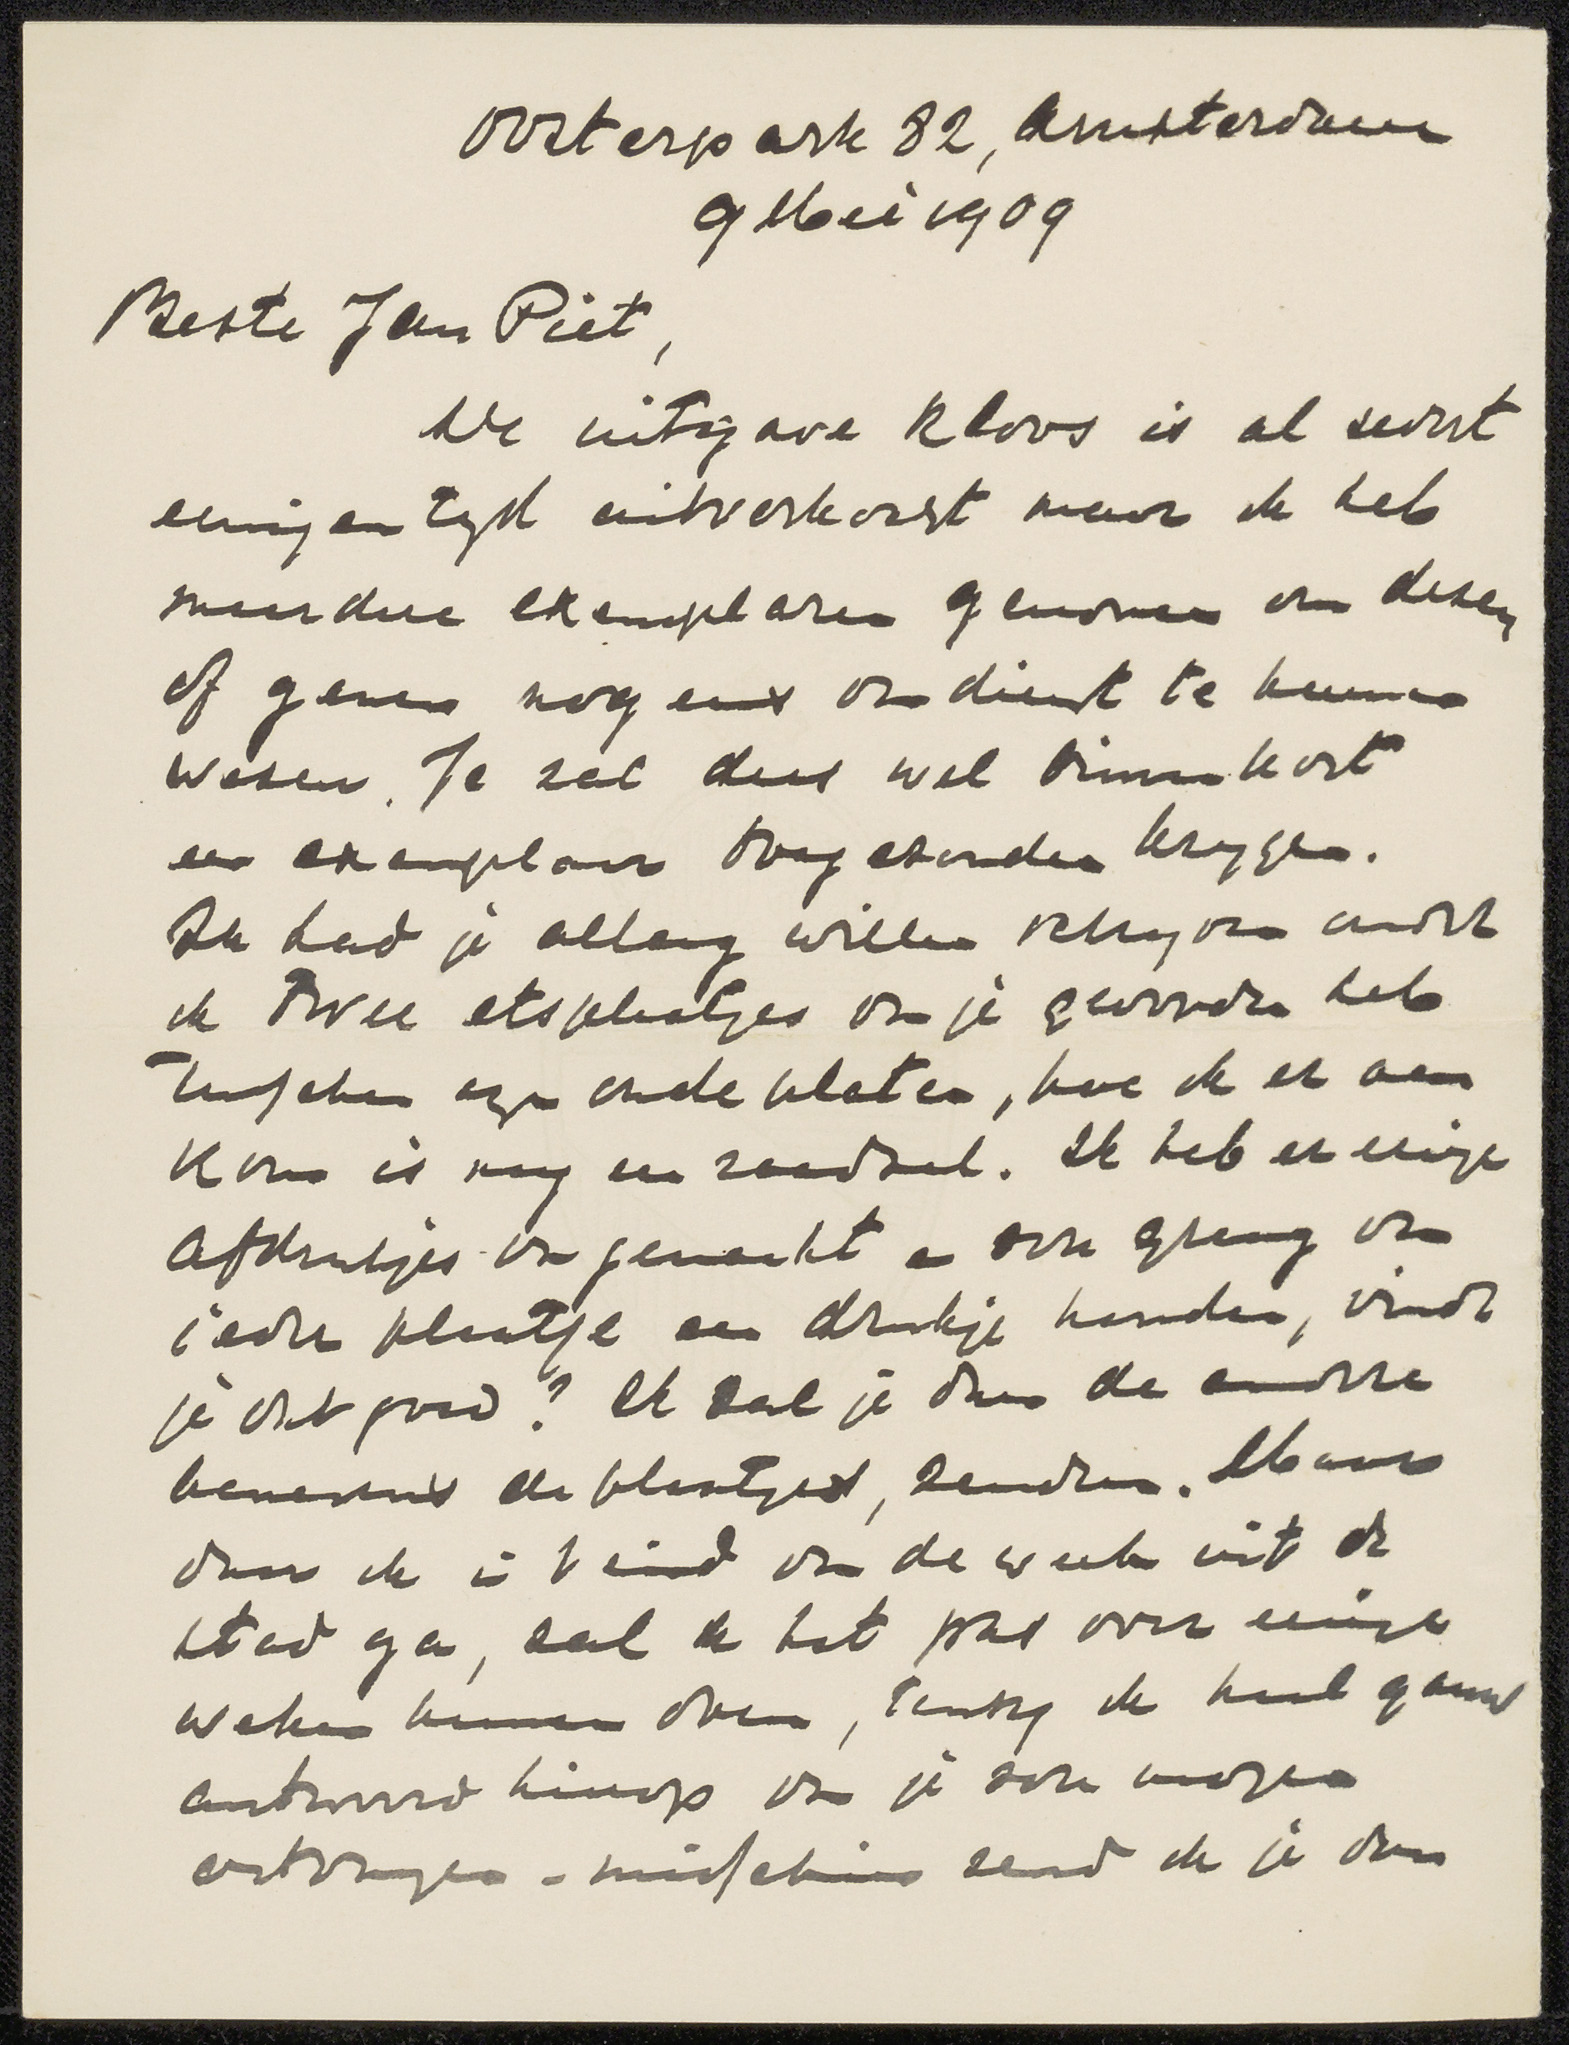 Oosterpark 82, Amsterdam
9 Mei 1909
Beste Jan Piet,
De uitgave Kloos is al sedert
eenigen tyd uitverkocht maar ik heb
meerdere exemplaren genomen om dezen
of genen nog eens van dienst te kunnen
wezen. Je zal dus wel binnenkort
een exemplaar toegezonden krygen.
Ik had je allang willen schryven omdat
ik twee etsplaatjes van je gevonden heb
tusschen myn oude platen, hoe ik er aan
kom is my een raadsel. Ik heb er eenige
afdrukjes van gemaakt en zou graag van
ieder plaatje een drukje houden, vindt
je dat goed? Ik zal je dan de andere
benevens de plaatjes, zenden. Maar
daar ik in 't eind van de week uit de
stad ga, zal ik het pas over eenige
weken kunnen doen, tenzy ik heel gauw
antwoord hierop van je zou mogen
ontvangen - misschien zend ik je dan